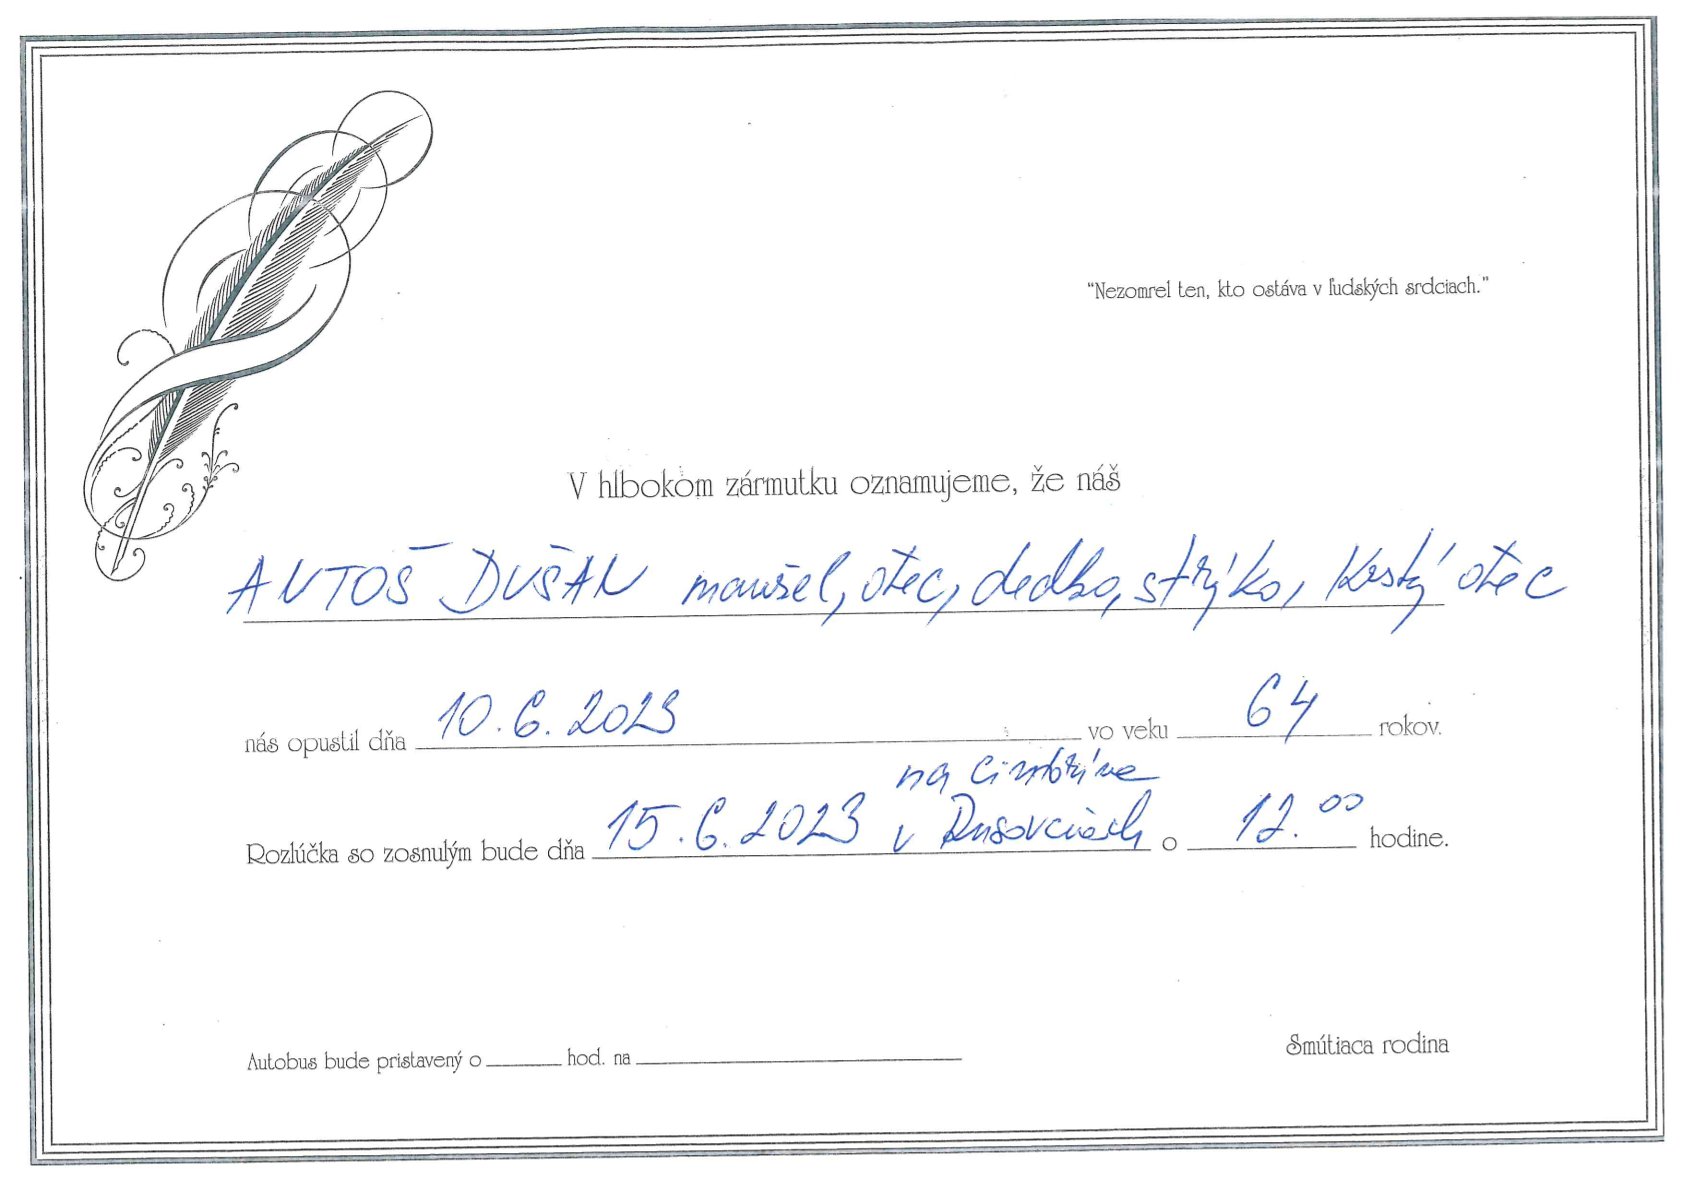 “Nezomrel ten, kto ostáva v ľudských srdciach.”
V hlbokom zármutku oznamujeme, že náš
ANTOŠ DUŠAN manžel, otec, dedko, strýko, krstý otec
nás opustil dňa 10.6.2023 vo veku 64 rokov.
na cintoríne
Rozlúčka so zosnulým bude dňa 15.6.2023 v Rusovciach o 12.00 hodine.
Autobus bude pristavený o ______ hod. na ______
Smútiaca rodina